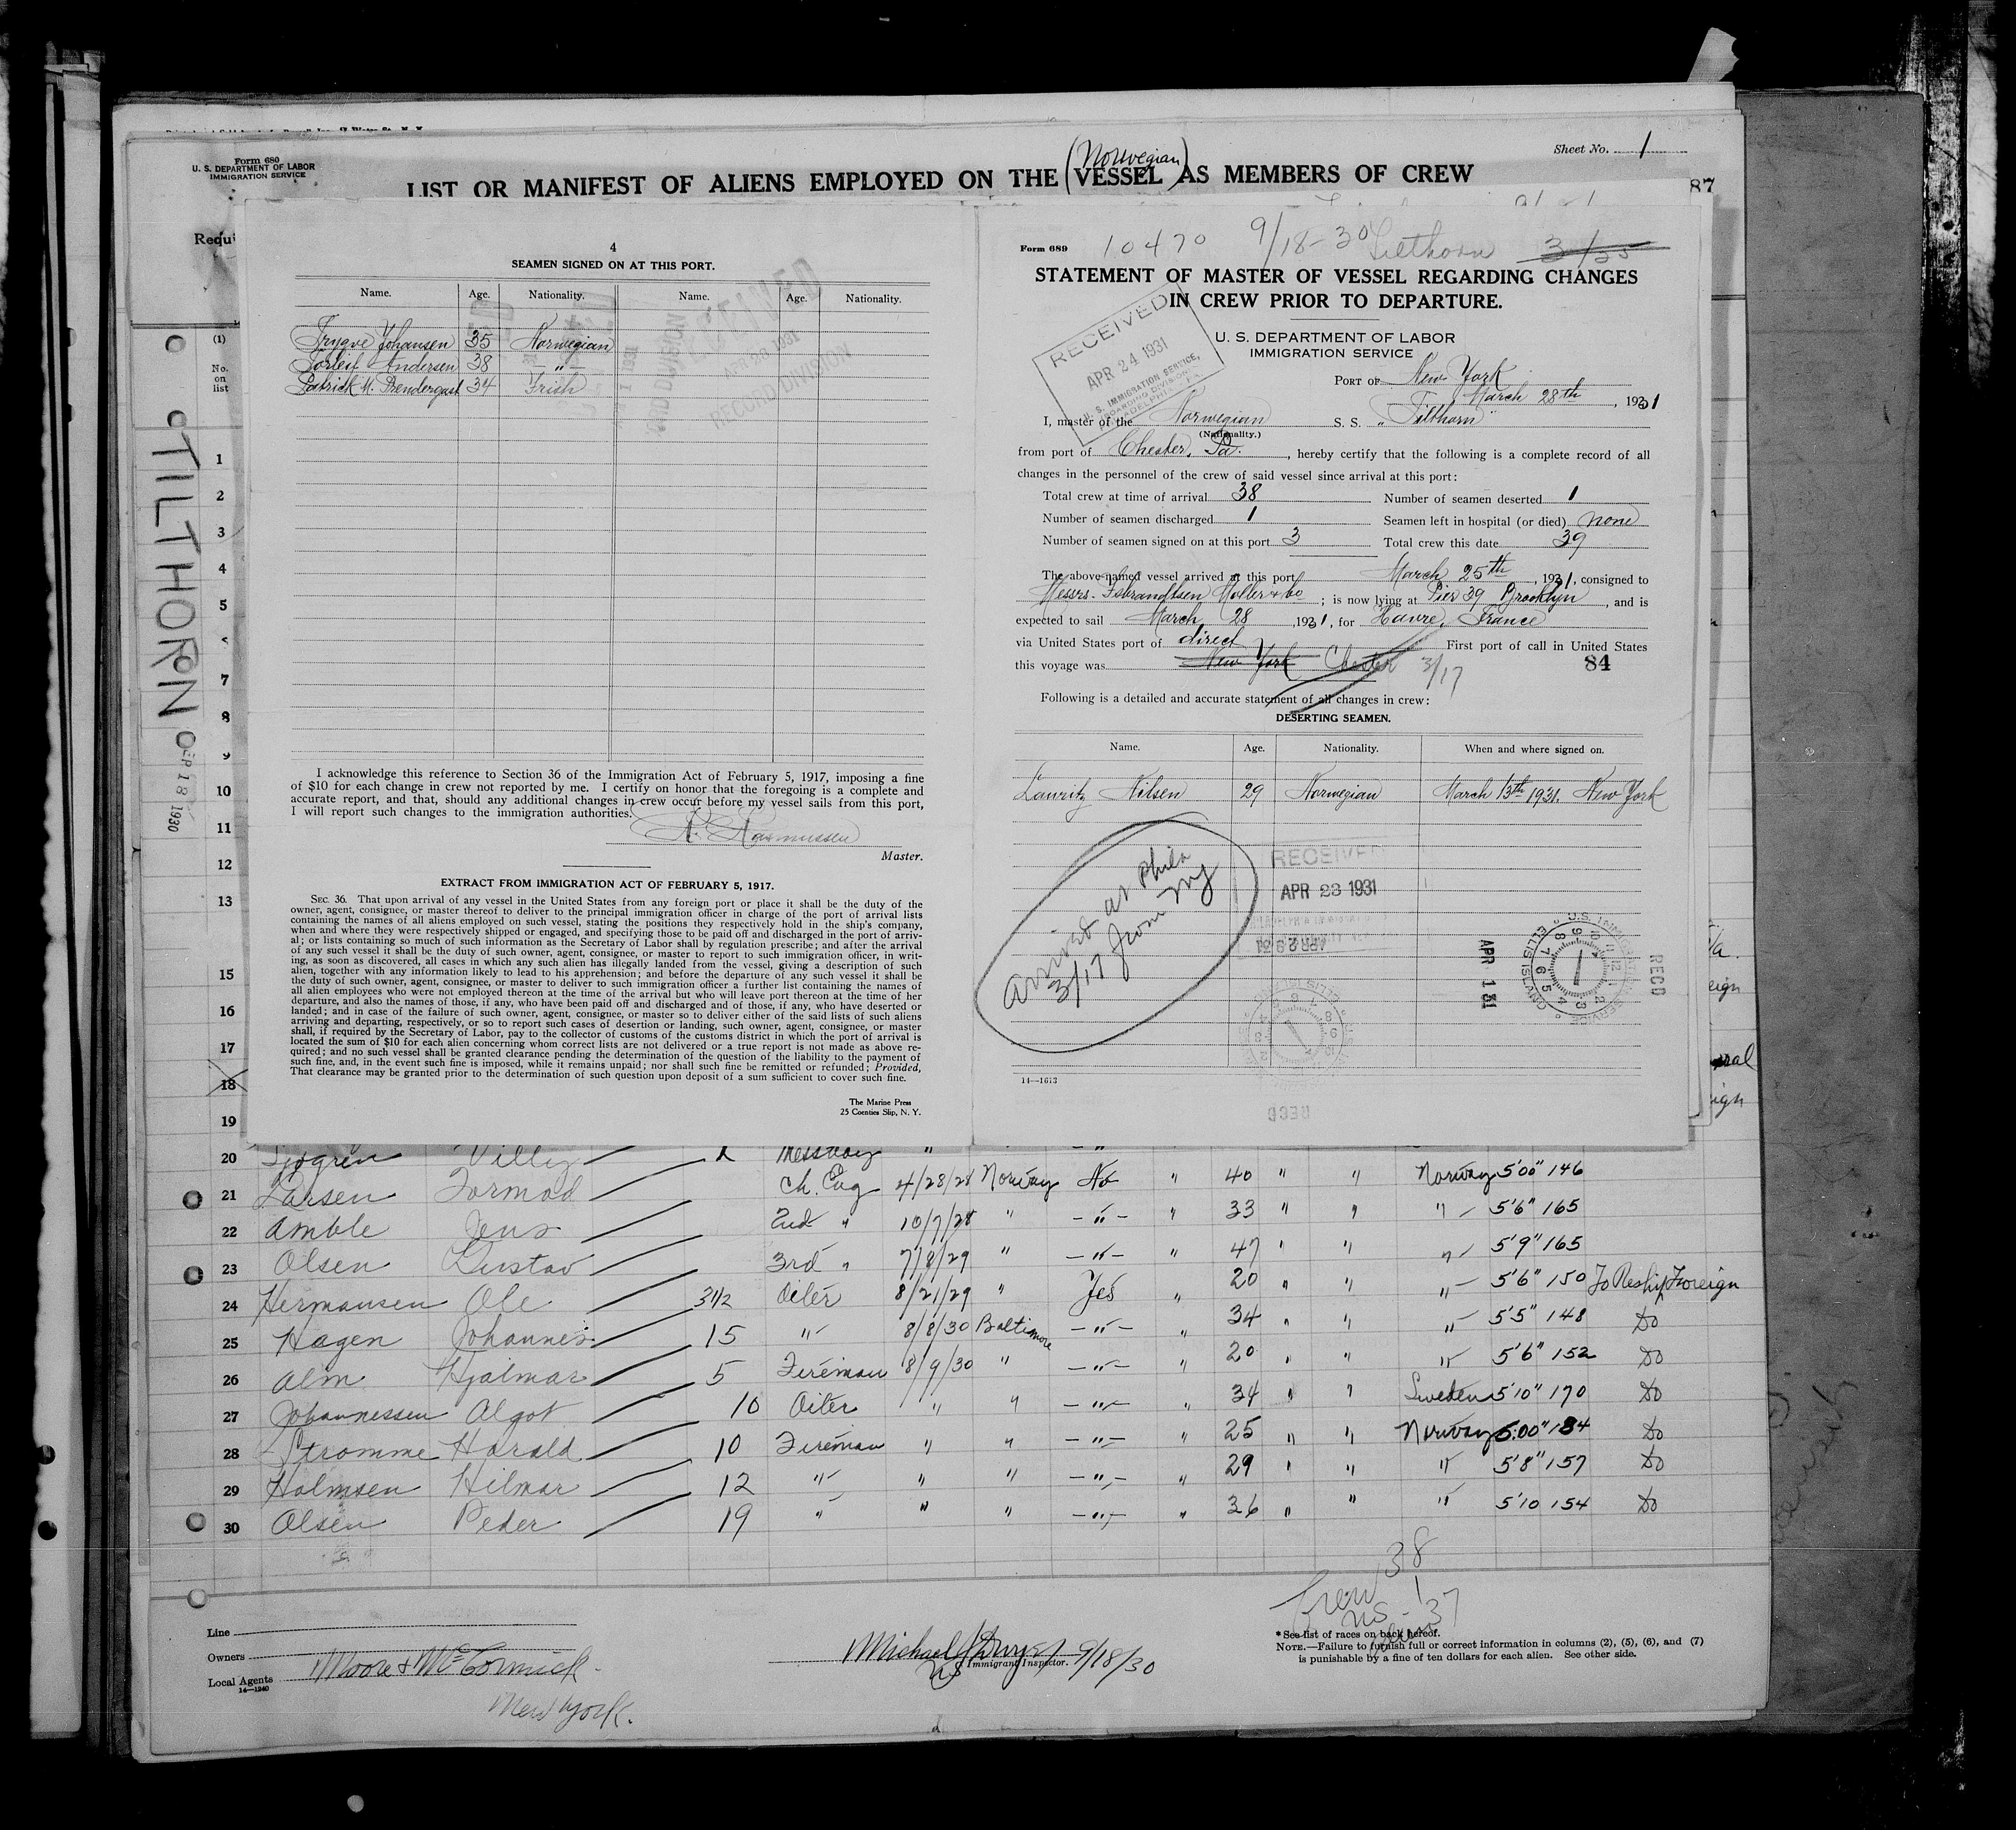 Form 680
U. S. DEPARTMENT OF LABOR
IMMIGRATION SERVICE
Sheet No. 1
(Norwegian)
LIST OR MANIFEST OF ALIENS EMPLOYED ON THE VESSEL AS MEMBERS OF CREW
87
Requi
(1)
No. on list
TILTHORN
SEP 18 1930
4
SEAMEN SIGNED ON AT THIS PORT.
Name. Age. Nationality. Name. Age. Nationality.
Trygve Johansen 35 Norwegian
Torleif Andersen 38 - " -
Patrick M. Prendergast 34 Irish
RECORD DIVISION
I acknowledge this reference to Section 36 of the Immigration Act of February 5, 1917, imposing a fine
of $10 for each change in crew not reported by me. I certify on honor that the foregoing is a complete and
accurate report, and that, should any additional changes in crew occur before my vessel sails from this port,
I will report such changes to the immigration authorities.
R. Rasmussen
Master.
EXTRACT FROM IMMIGRATION ACT OF FEBRUARY 5, 1917.
SEC. 36. That upon arrival of any vessel in the United States from any foreign port or place it shall be the duty of the
owner, agent, consignee, or master thereof to deliver to the principal immigration officer in charge of the port of arrival lists
containing the names of all aliens employed on such vessel, stating the positions they respectively hold in the ship's company,
when and where they were respectively shipped or engaged, and specifying those to be paid off and discharged in the port of arriv-
al; or lists containing so much of such information as the Secretary of Labor shall by regulation prescribe; and after the arrival
of any such vessel it shall be the duty of such owner, agent, consignee, or master to report to such immigration officer, in writ-
ing, as soon as discovered, all cases in which any such alien has illegally landed from the vessel, giving a description of such
alien, together with any information likely to lead to his apprehension; and before the departure of any such vessel it shall be
the duty of such owner, agent, consignee, or master to deliver to such immigration officer a further list containing the names of
all alien employees who were not employed thereon at the time of the arrival but who will leave port thereon at the time of her
departure, and also the names of those, if any, who have been paid off and discharged and of those, if any, who have deserted or
landed; and in case of the failure of such owner, agent, consignee, or master so to deliver either of the said lists of such aliens
arriving and departing, respectively, or so to report such cases of desertion or landing, such owner, agent, consignee, or master
shall, if required by the Secretary of Labor, pay to the collector of customs of the customs district in which the port of arrival is
located the sum of $10 for each alien concerning whom correct lists are not delivered or a true report is not made as above re-
quired; and no such vessel shall be granted clearance pending the determination of the question of the liability to the payment of
such fine, and, in the event such fine is imposed, while it remains unpaid; nor shall such fine be remitted or refunded; Provided,
That clearance may be granted prior to the determination of such question upon deposit of a sum sufficient to cover such fine.
The Marine Press
25 Coenties Slip, N. Y.
Form 689 10470 9/18-30 Tilthorn 3/25
STATEMENT OF MASTER OF VESSEL REGARDING CHANGES
IN CREW PRIOR TO DEPARTURE.
U. S. DEPARTMENT OF LABOR
IMMIGRATION SERVICE
RECEIVED
APR 24 1931
U. S. IMMIGRATION SERVICE,
(BOARDING DIVISION)
PHILADELPHIA - PA.
PORT OF New York
March 28th, 1931
I, master of the Norwegian S. S. "Tilthorn"
(Nationality.)
from port of Chester, Pa., hereby certify that the following is a complete record of all
changes in the personnel of the crew of said vessel since arrival at this port:
Total crew at time of arrival 38 Number of seamen deserted 1
Number of seamen discharged 1 Seamen left in hospital (or died) none
Number of seamen signed on at this port 3 Total crew this date 39
The above-named vessel arrived at this port March 25th, 1931, consigned to
Messrs. Isbrandtsen Moller & Co; is now lying at Pier 39 Brooklyn, and is
expected to sail March 28, 1931, for Havre, France
via United States port of direct First port of call in United States
this voyage was New York Chester 3/17 84
Following is a detailed and accurate statement of all changes in crew:
DESERTING SEAMEN.
Name. Age. Nationality. When and where signed on.
Lauritz Nilsen 29 Norwegian March 13th 1931. New York
arrived at Phila
3/17 from NY
RECEIVED
APR 23 1931
APR 1 31
U.S. IMMIGRATION SERVICE ELLIS ISLAND
RECD
14—1613
RECD
1
2
3
4
5
6
7
8
9
10
11
12
13
15
16
17
18
19
20 Sjogren Villy Messboy
21 Larsen Tormod Ch. Eng 4/28/28 Norway No " 40 " " Norway 5'00" 146
22 Amble Jens 2nd " 10/7/28 " - " - " 33 " " " 5'6" 165
23 Olsen Gustav 3rd " 7/8/29 " - " - " 47 " " " 5'9" 165
24 Hermansen Ole 3 1/2 Oiler 8/21/29 " Yes " 20 " " " 5'6" 150 To Reship Foreign
25 Hagen Johannes 15 " 8/8/30 Baltimore - " - " 34 " " " 5'5" 148 Do
26 Alm Hjalmar 5 Fireman 8/9/30 " - " - " 20 " " " 5'6" 152 Do
27 Johannessen Algot 10 Oiler " " - " - " 34 " " Sweden 5'10" 170 Do
28 Stromme Harald 10 Fireman " " - " - " 25 " " Norway 6'00" 184 Do
29 Holmsen Hilmar 12 " " " - " - " 29 " " " 5'8" 157 Do
30 Olsen Peder 19 " " " - " - " 36 " " " 5'10 154 Do
Crew 38
US - 1
37
Line
Owners
Local Agents Moore & McCormick.
14—1240
New York.
Michael Dwyer 9/18/30
US Immigrant Inspector.
* See list of races on back hereof.
NOTE.—Failure to furnish full or correct information in columns (2), (5), (6), and (7)
is punishable by a fine of ten dollars for each alien. See other side.